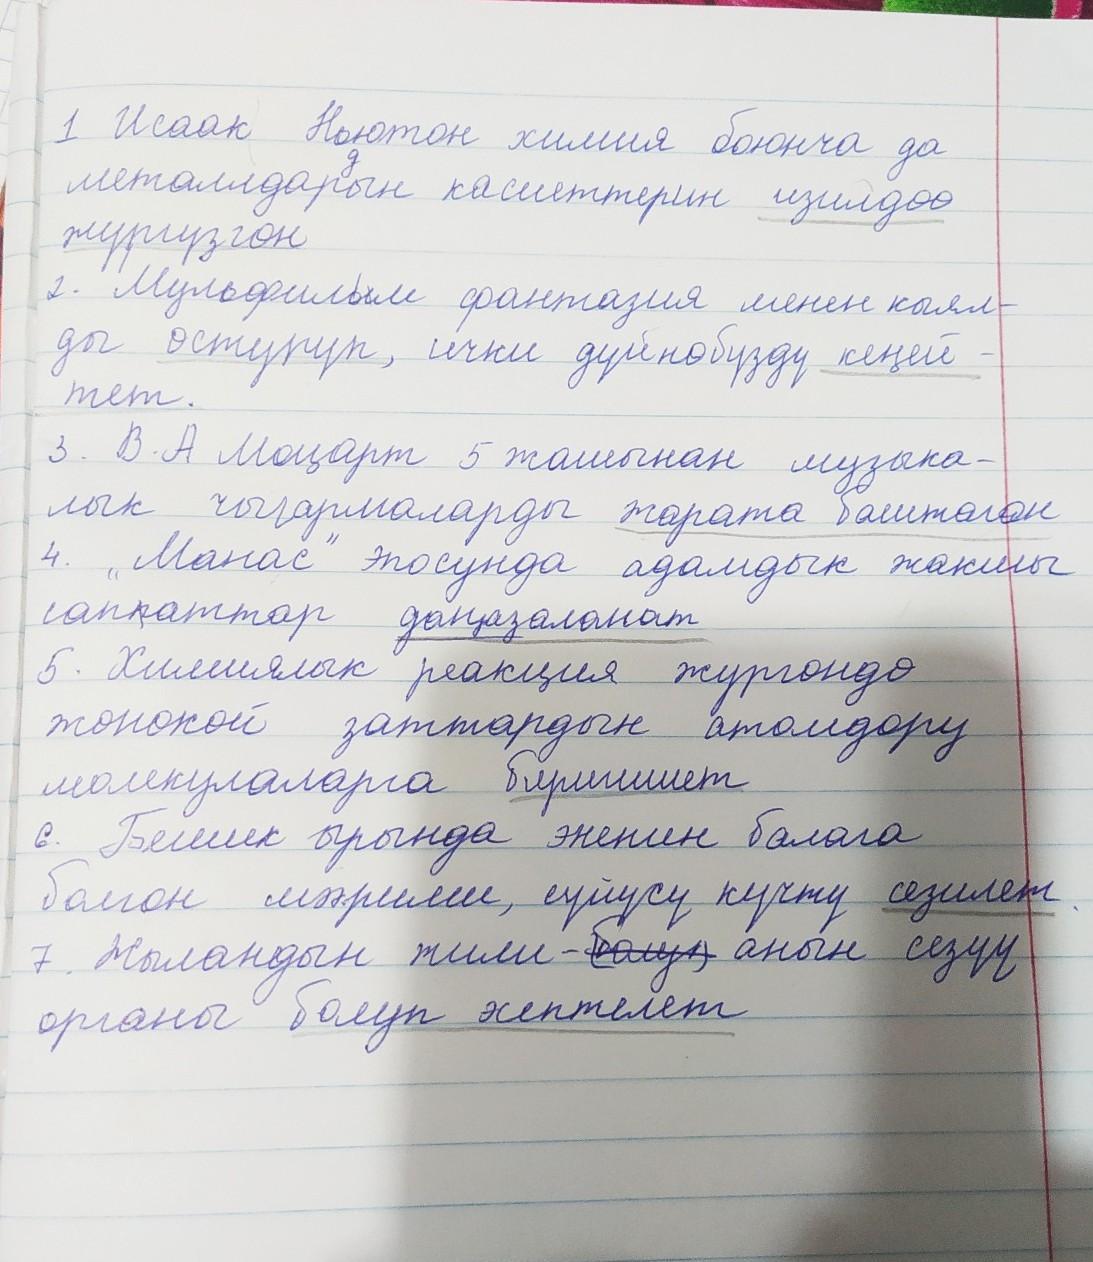 1 Исаак Ньютон химия боюнча да
металлдардын касиеттерин изилдоо
жургузгон
2. Мульфильм фантазия менен кыял-
ды остуруп, ички дуйнобузду кеңей-
тет.
3. В.А Моцарт 5 жашынан музыка-
лык чыгармаларды жарата баштаган
4. „Манас" эпосунда адамдык жакшы
сапаттар даңазаланат
5. Химиялык реакция жургондо
жонокой заттардын атомдору
молекулаларга биригишет
6. Бешик ырында эненин балага
болгон мээрими, суйусу кучту сезилет.
7. Жыландын тили - анын сезуу
органы болуп эсептелет